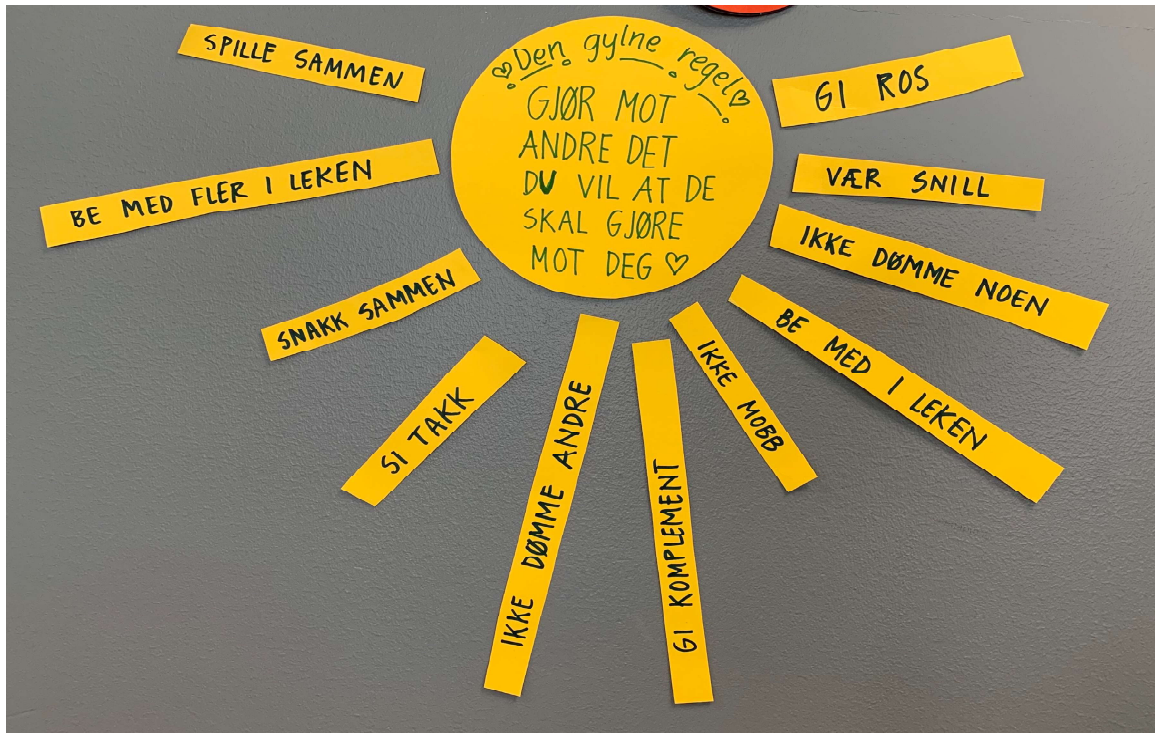 Den gylne regel
GJØR MOT
ANDRE DET
DU VIL AT DE
SKAL GJØRE
MOT DEG
SPILLE SAMMEN
BE MED FLER I LEKEN
SNAKK SAMMEN
SI TAKK
IKKE DØMME ANDRE
GI KOMPLEMENT
IKKE MOBB
BE MED I LEKEN
IKKE DØMME NOEN
VÆR SNILL
GI ROS